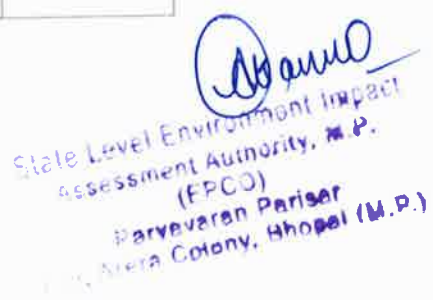 State Level Environment Impact
Assessment Authority, M.P.
(EPCO)
Paryavaran Parisar
Arera Colony, Bhopal (M.P.)